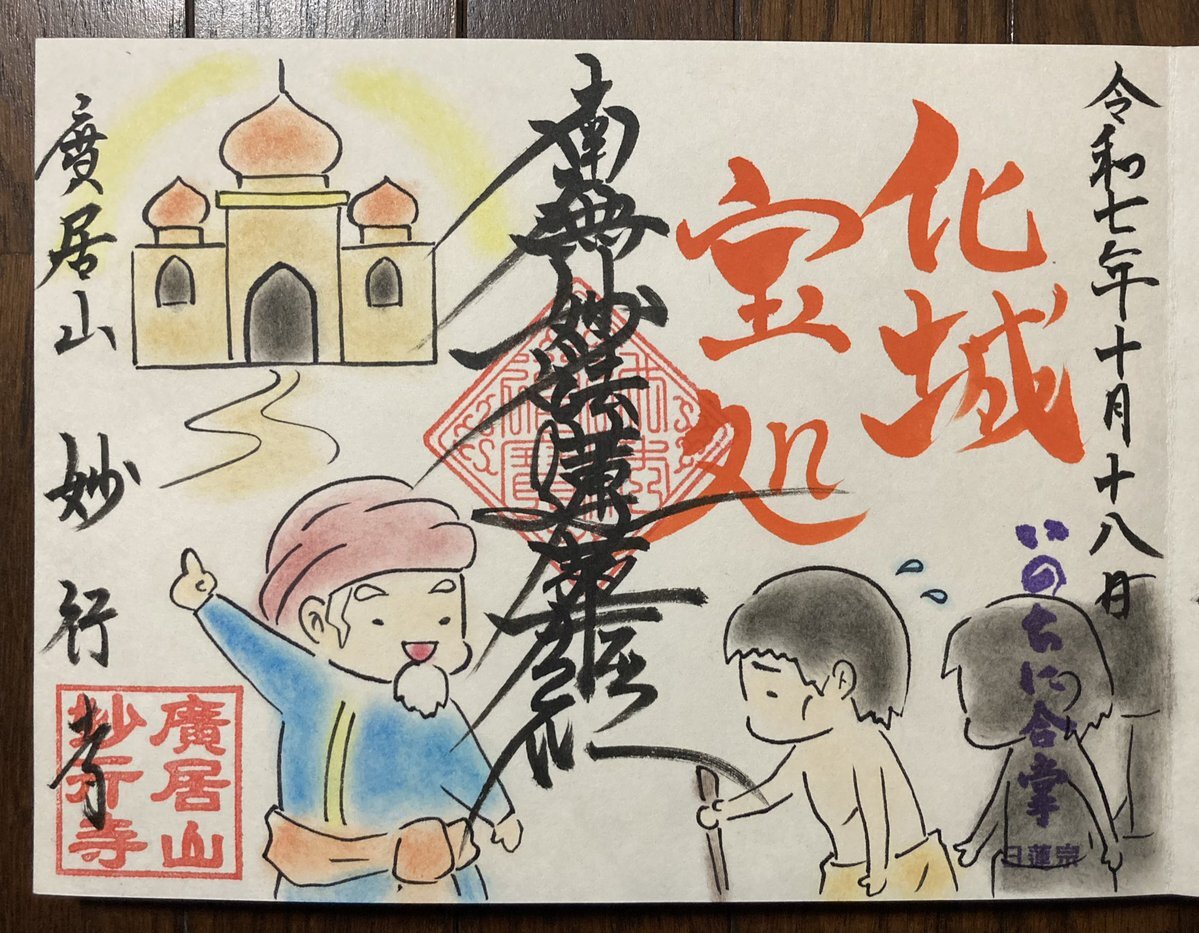 令和七年十月十八日
いのちに合掌
日蓮宗
化城
宝処
南無妙法蓮華経
廣居山
妙行寺
廣居山
妙行寺